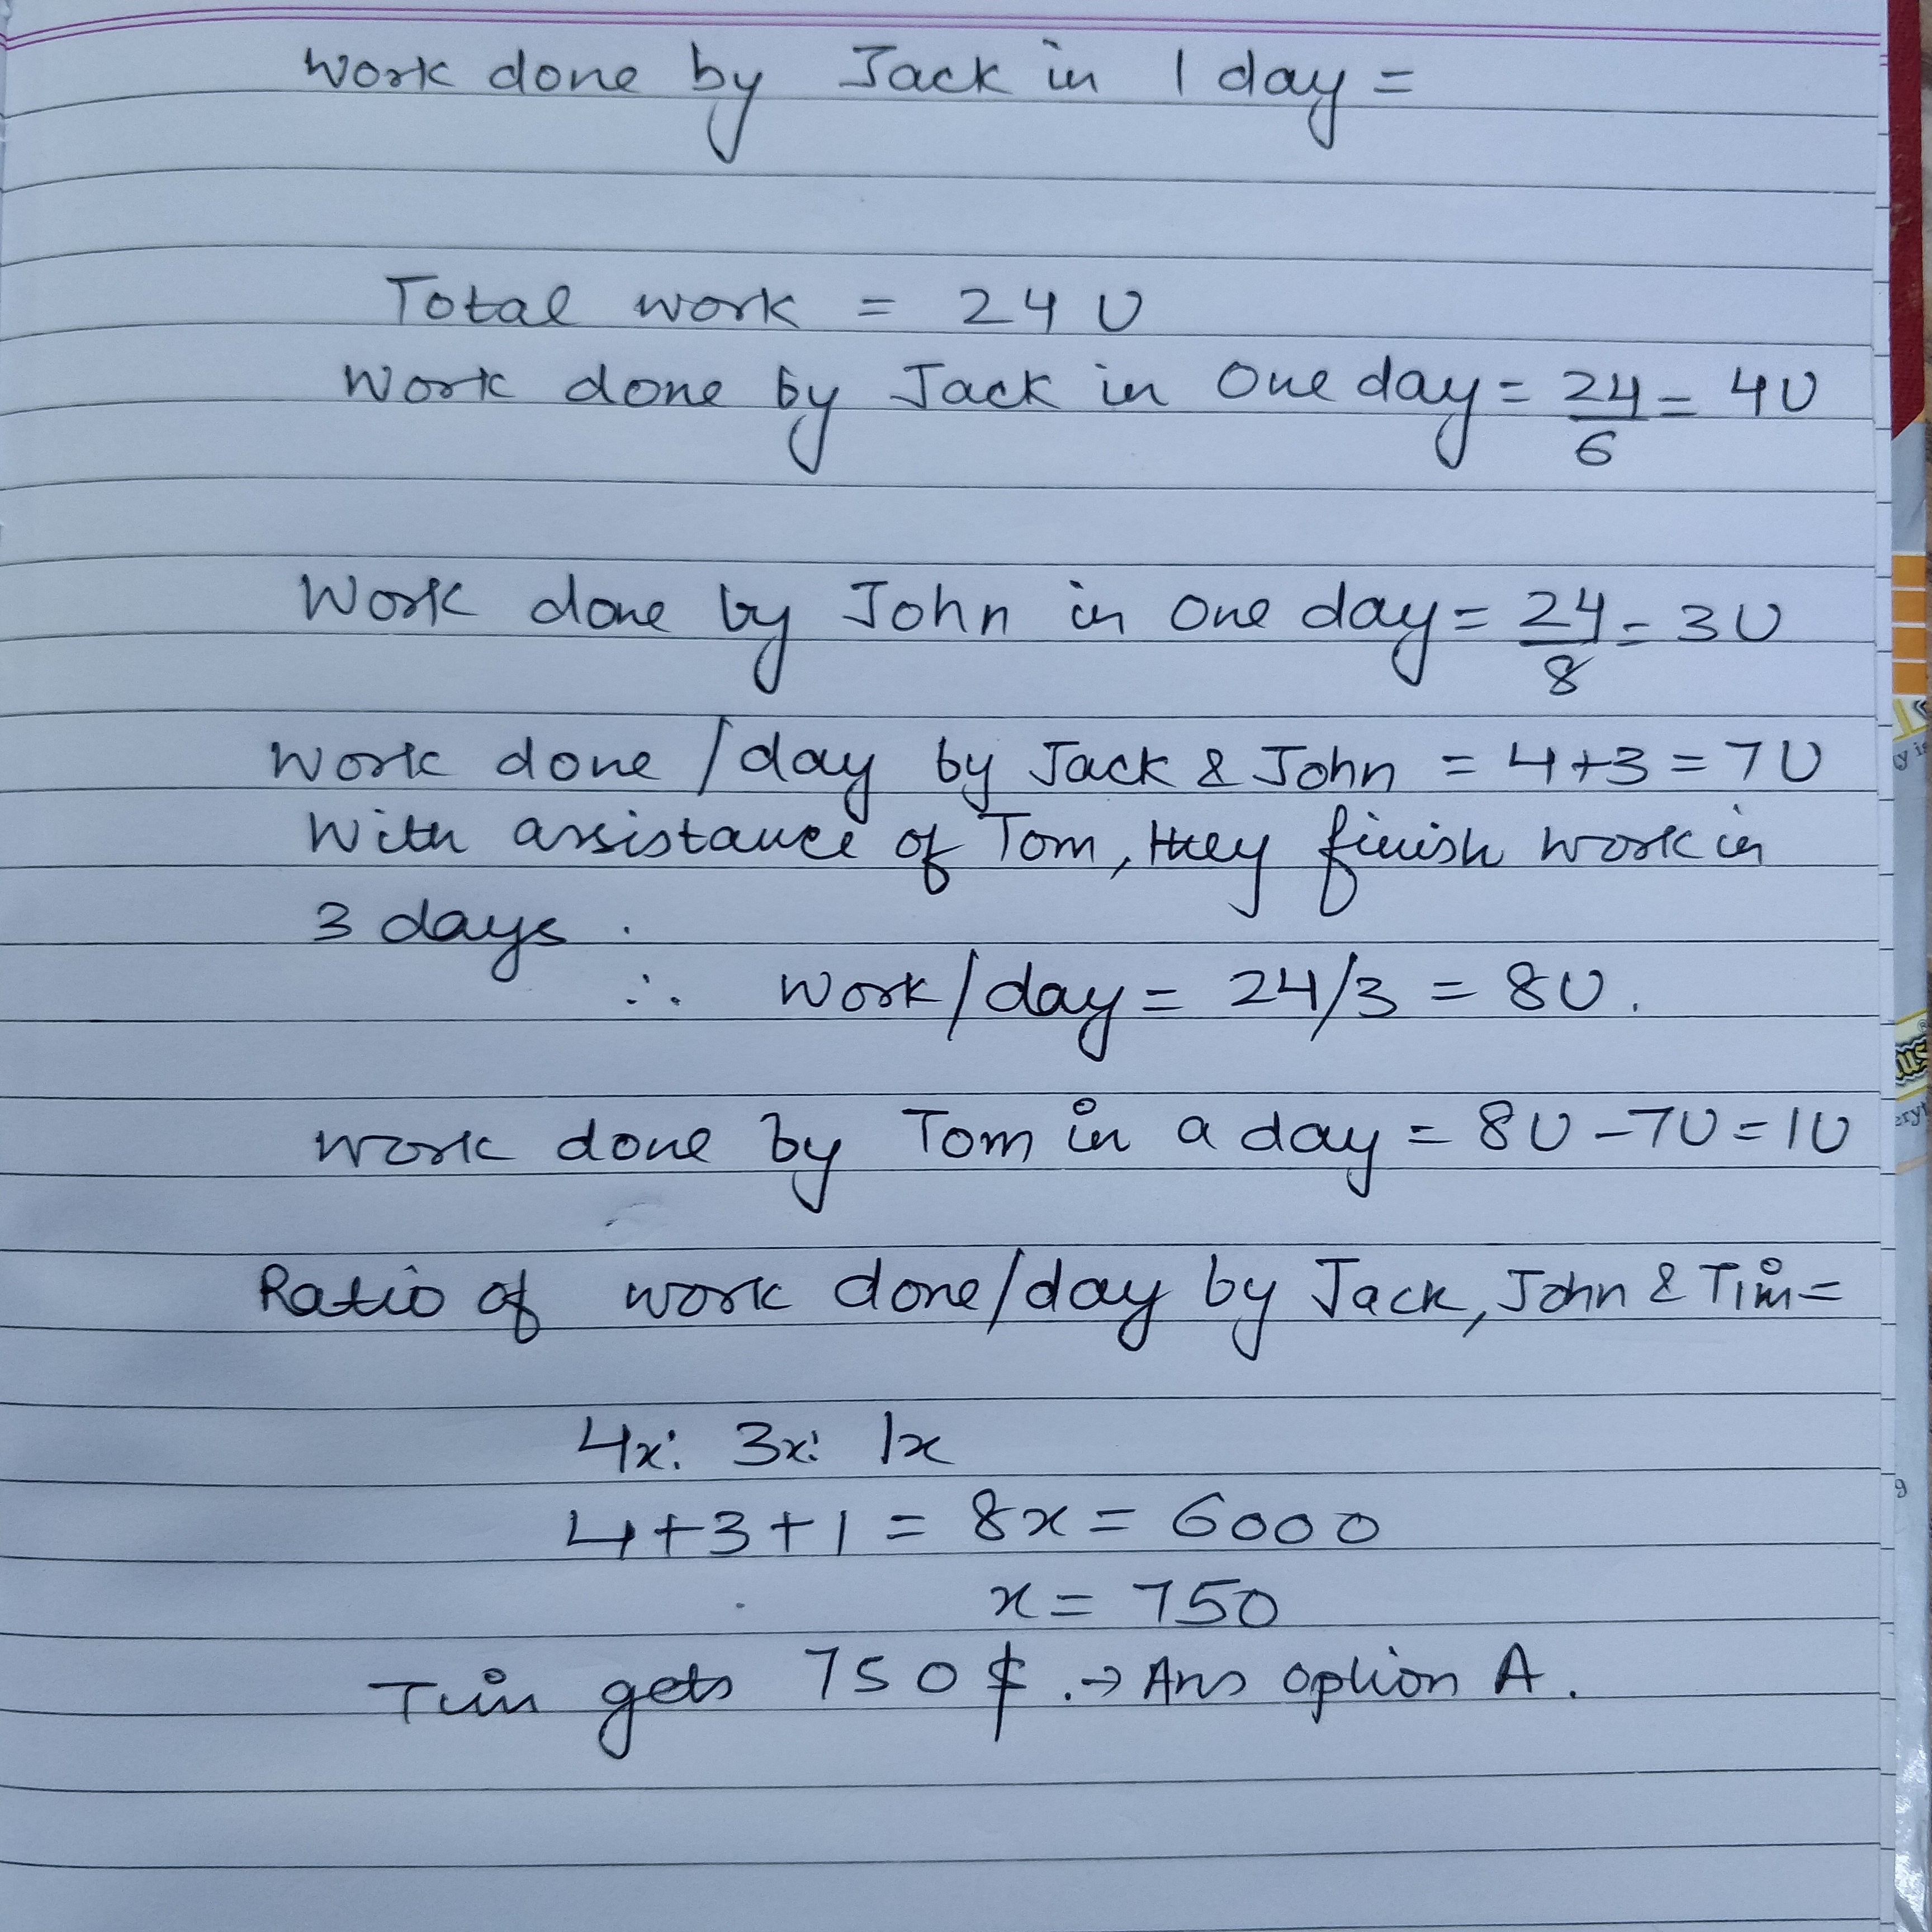 Work done by Jack in 1 day =
Total work = 24 U
Work done by Jack in One day = 24/6 = 4U
Work done by John in One day = 24/8 = 3U
Work done / day by Jack & John = 4+3 = 7U
With assistance of Tom, they finish work in
3 days.
∴ Work/day = 24/3 = 8U.
Work done by Tom in a day = 8U - 7U = 1U
Ratio of work done/day by Jack, John & Tim =
4x: 3x: 1x
4+3+1 = 8x = 6000
x = 750
Tim gets 750 $. → Ans option A.